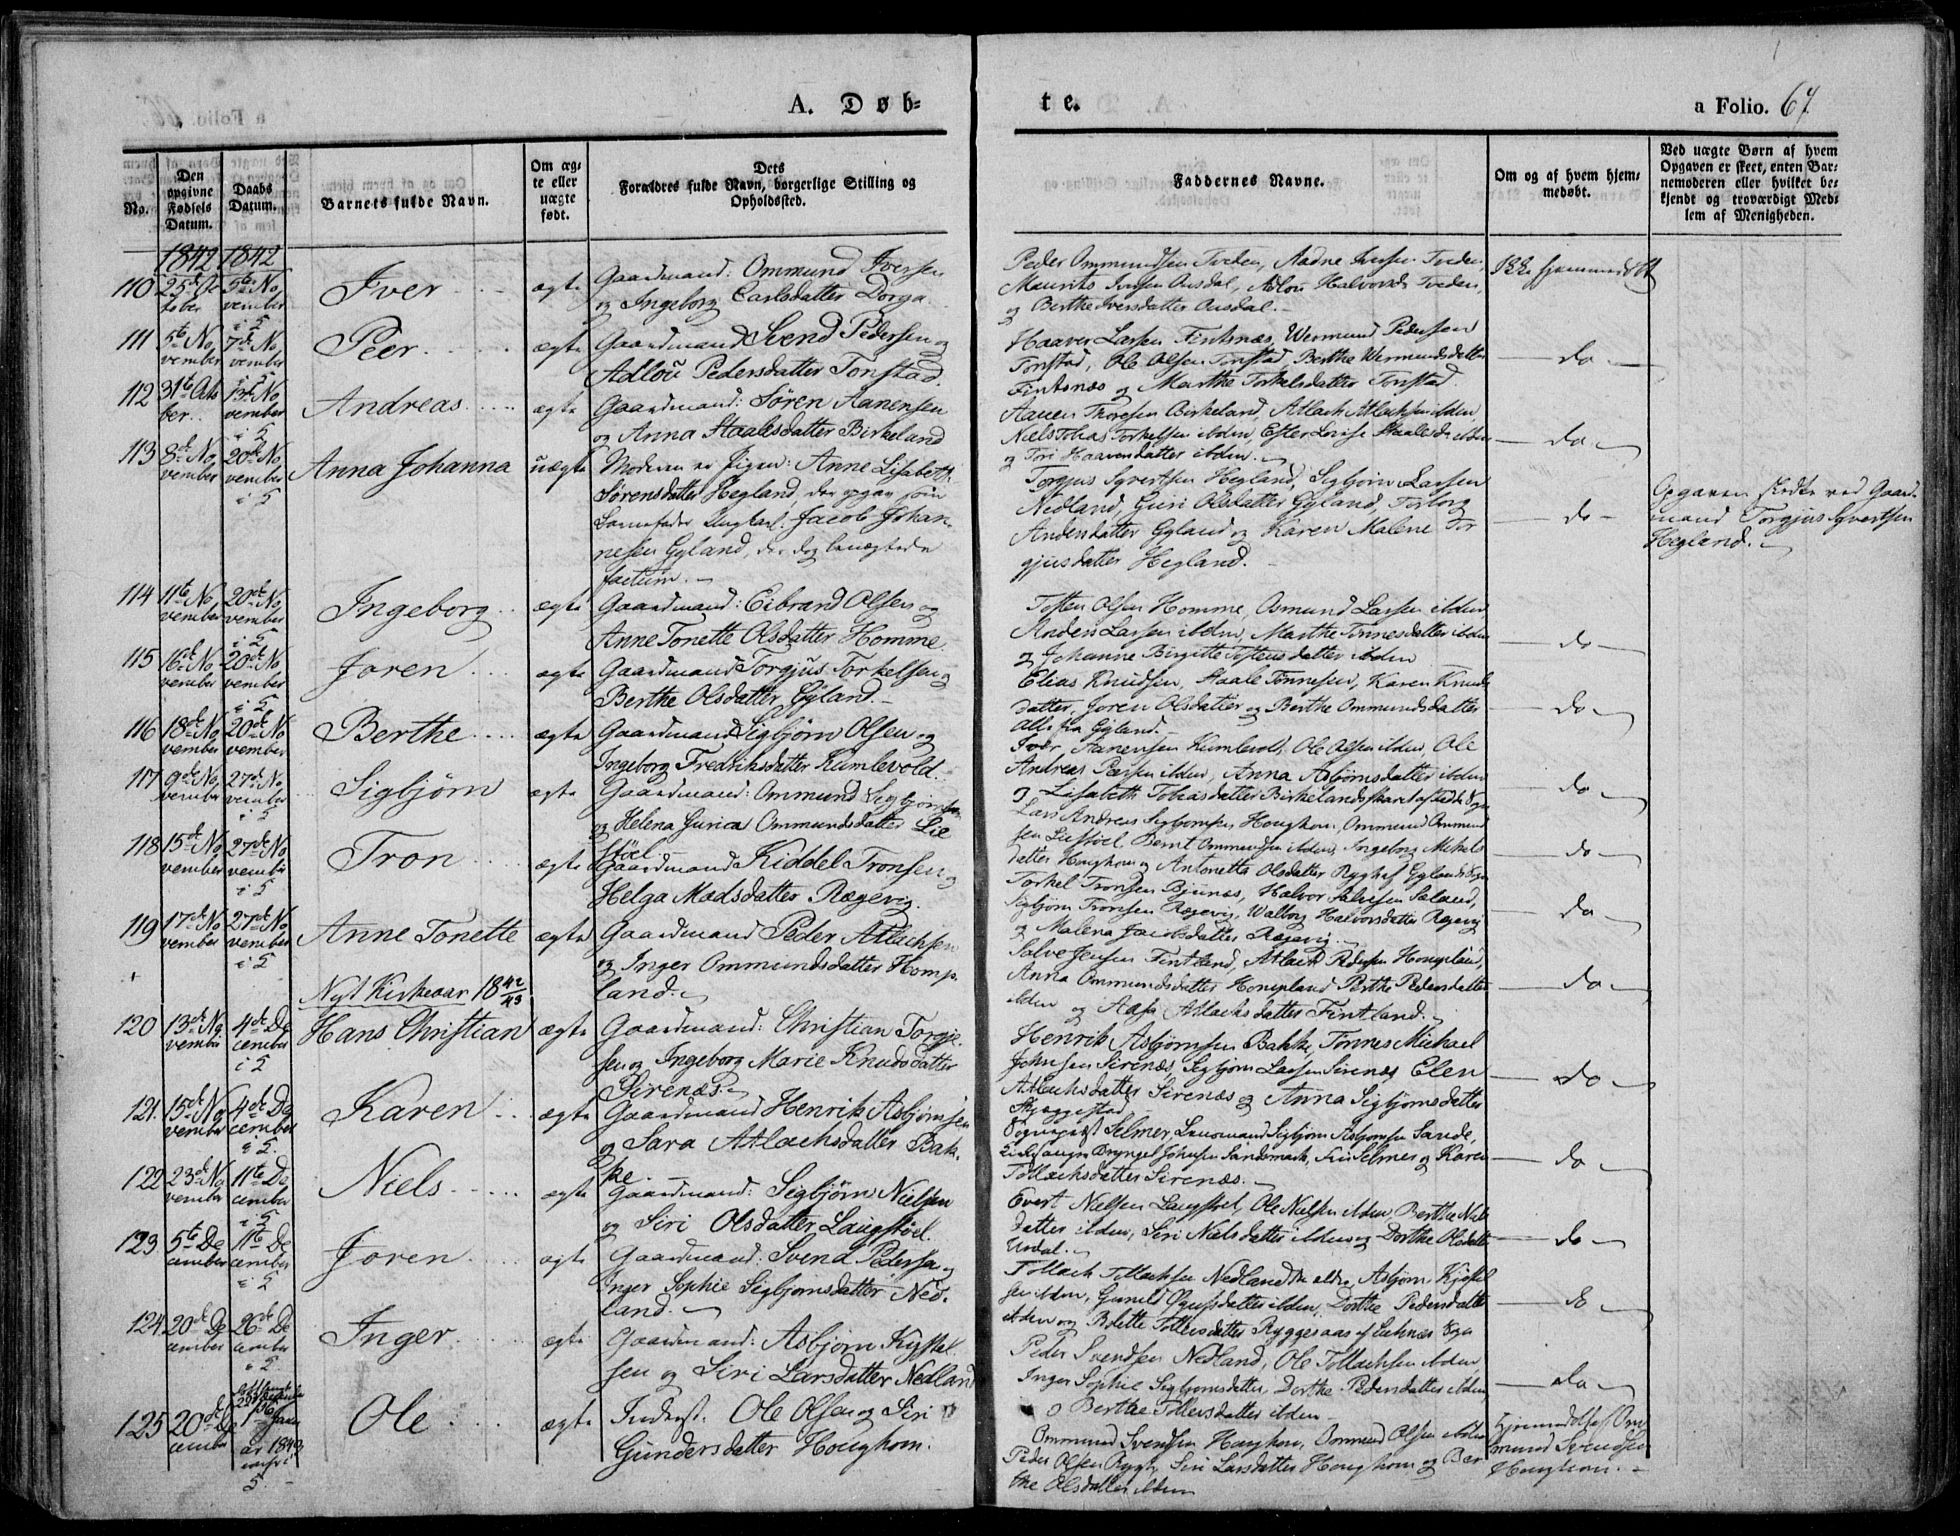 A. Døb-
te.
a Folio. 67.
No.
Den opgivne Fødsels Datum.
Daabs Datum.
Barnets fulde Navn.
Om ægte eller uægte født.
Dets Forældres fulde Navn, borgerlige Stilling og Opholdssted.
Faddernes Navne.
Om og af hvem hjemmedøbt.
Ved uægte Børn af hvem Opgaven er skeet, enten Barnemoderen eller hvilket bekjendt og troværdigt Medlem af Menigheden.
1842 1842
110 25de October
Iver
ægte
Gaardmand: Ommund Iversen
og Ingeborg Carlsdatter Dorga
Peder Ommundsen Tveden, Aadne Iversen Tveden,
Maurits Iversen Ousdal, Adlou Halvorsd. Tveden,
og Berthe Iversdatter Ousdal.
Ikke hjemmedøbt
111 5te November 7de November
Peer
ægte
Gaardmand Svend Pedersen og
Adlou Pedersdatter Tonstad.
Haaver Larsen Fintsnæs, Wermund Pedersen
Tonstad, Ole Olsen Tonstad, Berthe Wermundsdatter
Fintsnæs og Marthe Torkelsdatter Tonstad.
do
112 31te October 13de November i 5
Andreas
ægte
Gaardmand: Søren Aanensen
og Anna Staalesdatter Birkeland
Aanen Thoresen Birkeland, Atlach Atlachsen ibden
Niels Tobias Torkelsen ibden, Ester Lovise Staalesd. ibden
og Tori Haaversdatter ibden.
do
113 8de November 20de November i 5
Anna Johanna
uægte
Moderen er Pigen: Anne Lisabeth
Sørensdatter Hegland, der opgav som
Barnefader Ungkarl. Jacob Johan-
nesen Gyland, der dog benægtede
factum.
Torgius Syvertsen Hegland, Sigbjørn Larsen
Nedland, Guri Olsdatter Gyland, Torborg
Andersdatter Gyland og Karen Malene Tor
gjusdatter Hegland.
do
Opgaven skedte ved Gaard-
mand Torgjus Syvertsen
Hegland.
114 11te November 20de November i 5
Ingeborg
ægte
Gaardmand: Eibrand Olsen og
Anne Tonette Olsdatter Homme.
Tosten Olsen Homme, Osmund Larsen ibden,
Anders Larsen ibden, Marthe Tønnesdatter ibden
og Johanne Birgitte Tostensdatter ibden
do
115 16de November 20de November i 5
Joren
ægte
Gaardmand Torgjus Torkelsen og
Berthe Olsdatter Gyland.
Elias Knudsen, Staale Tønnesen, Karen Knuds
datter, Joren Olsdatter og Berthe Ommundsdatter
alle fra Gyland.
do
116 18de November 20de November
Berthe
ægte
Gaardmand Sigbjørn Olsen og
Ingeborg Fredriksdatter Kumlevold.
Iver Aanensen Kumlevold, Ole Olsen ibden, Ole
Andreas Pæersen ibden, Anna Asbjørnsdatter ibden
og Lisabeth Tobiasdatter
do
117 9de November 27de November i 5
Sigbjørn
ægte
Gaardmand: Ommund Sigbjørnsen
og Helena Gurica Ommundsdatter Lie
støel
Lars Andreas Sigbjørnsen Houghom, Ommund Ommund
sen Liestøel, Bernt Ommundsen ibden, Ingeborg Mikels
datter Houghom og Antonetta Olsdatter
do
118 15de November 27de November i 5
Tron
ægte
Gaardmand Kiddel Tronsen og
Helga Madsdatter Rægevig.
Torkel Tronsen Bjunes, Halvor Salvesen Saland,
Sigbjørn Tronsen Rægevig, Walborg Halvorsdatter Rægevig
og Malena Jacobsdatter Rægevig.
do
119 17de November 27de November i 5
Anne Tonette
ægte
Gaardmand Peder Atlachsen
og Inger Ommundsdatter Homp-
land.
Salve Jensen Fintland, Atlach Pedersen Hompland,
Anna Ommundsdatter Hompland, Berthe Pedersdatter
ibden og Aasa Atlachsdatter Fintland.
do
Nyt Kirkeaar 1842/43
120 13de November 4de December i 5
Hans Christian
ægte
Gaardmand: Christian Torgje-
sen og Ingeborg Marie Knudsdatter
Sirenæs.
Henrik Asbjørnsen Bakke, Tønnes Michael
Johnsen Sirenæs, Sigbjørn Larsen Sirenæs, Elen
Atlachsdatter Sirenæs og Anna Sigbjørnsdatter
Skjæggestad
do
121. 15de November 4de December i 5.
Karen
ægte
Gaardmand Henrik Asbjørnsen
og Sara Atlachsdatter Bak-
ke.
Sognepræst Selmer, Lensmand Sigbjørn Asbjørnsen Sande,
Sandsmark, Fru Selmer og Karen
Tollachsdatter Sirenæs.
do
122 23de November 11te December i 5
Niels
ægte
Gaardmand: Sigbjørn Nielsen
og Siri Olsdatter Laugstøel.
Evert Nielsen Laugstøel, Ole Nielsen ibden, Berthe Niels
datter ibden, Siri Nielsdatter ibden og Dorthe Olsdatter
Urdal.
do
123 5te December 11te December i 5
Joren
ægte
Gaardmand: Svend Pedersen og
Inger Sophie Sigbjørnsdatter Ned-
land.
Tollach Tollachsen Nedland den ældre, Asbjørn Kjøstel
sen ibden, Gunild ibden, Dorthe Pedersdatter
ibden og Bolette Tollevsdatter Ryggesaas
do
124 20de December 26de December i 5
Inger
ægte
Gaardmand: Asbjørn Kjøstel-
sen og Siri Larsdatter Nedland
Peder Svendsen Nedland, Ole Tollachsen ibden
Inger Sophie Sigbjørnsdatter, Dorthe Pedersdatter ibden,
og Berthe Tollevsdatter ibden.
do
125 20de December 1ste Januar 1843
Ole
ægte
Inderst: Ole Olsen og Siri
Gundersdatter Houghom.
Ommund Svendsen Houghom, Ommund Olsen ibden
Peder Olsen Rygh, Siri Larsdatter Houghom og Ber
the Olsdatter ibden
Hjemmedøbt af Om
mund Svendsen
Houghom.